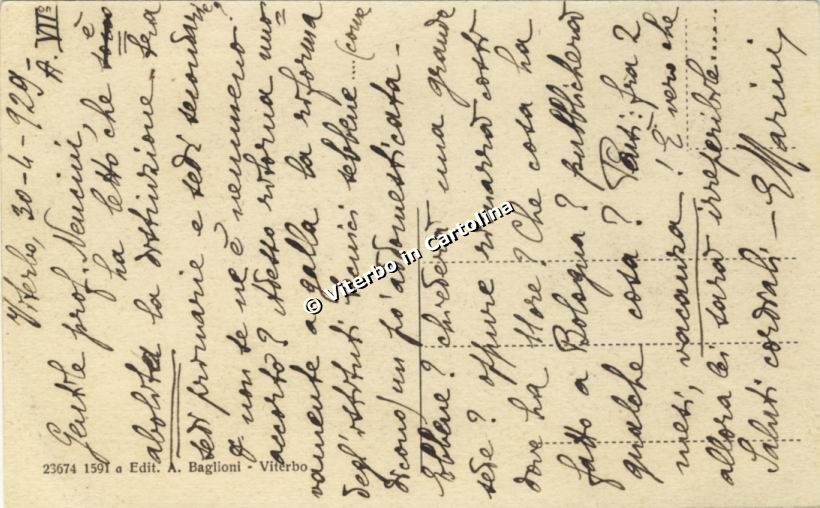 Viterbo, 30-4-929 -
A. VIIº
Gentile prof. Nencini,
ha letto che è
abolita la distinzione fra
sedi primarie e sedi secondarie?
o non se ne è nemmeno
accorto? Adesso ritorna nuo=
vamente a galla la riforma
degl'istituti tecnici sebbene.... (come
dicono) un po' addomesticata -
Ebbene? chiederà una grande
sede? oppure rimarrà costì
dove ha ? Che cosa ha
fatto a Bologna? pubblicherà
qualche cosa? Tanti: fra 2
mesi, vacanza! È vero che
allora lei sarà irreperibile....
Saluti cordiali - E Marini
23674 1591 a Edit. A. Baglioni - Viterbo
© Viterbo in Cartolina